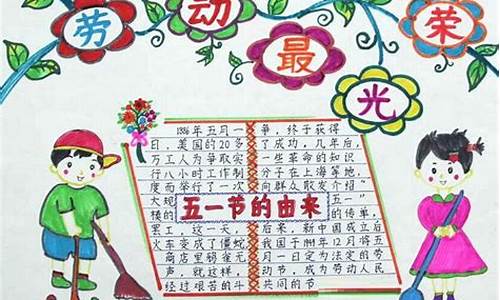 劳动最光荣
五一节的由来
1886年五月一
日，美国的20多
万工人为争取实
行八小时工作制
度而举行了一次
大
模的
罢工，这一天
火车变成了僵蛇
商店里鸦雀无
声，就这样，
经过艰苦的斗
争，终于获得
了成功，几年后，
一些革命的知识
分子在上海等地，
向群众散发介绍
五一”
的传单，
后来，新中国成立后
我国于1949年12月将五
月一日定为法定的劳
动节，成为劳动人民
共同的节